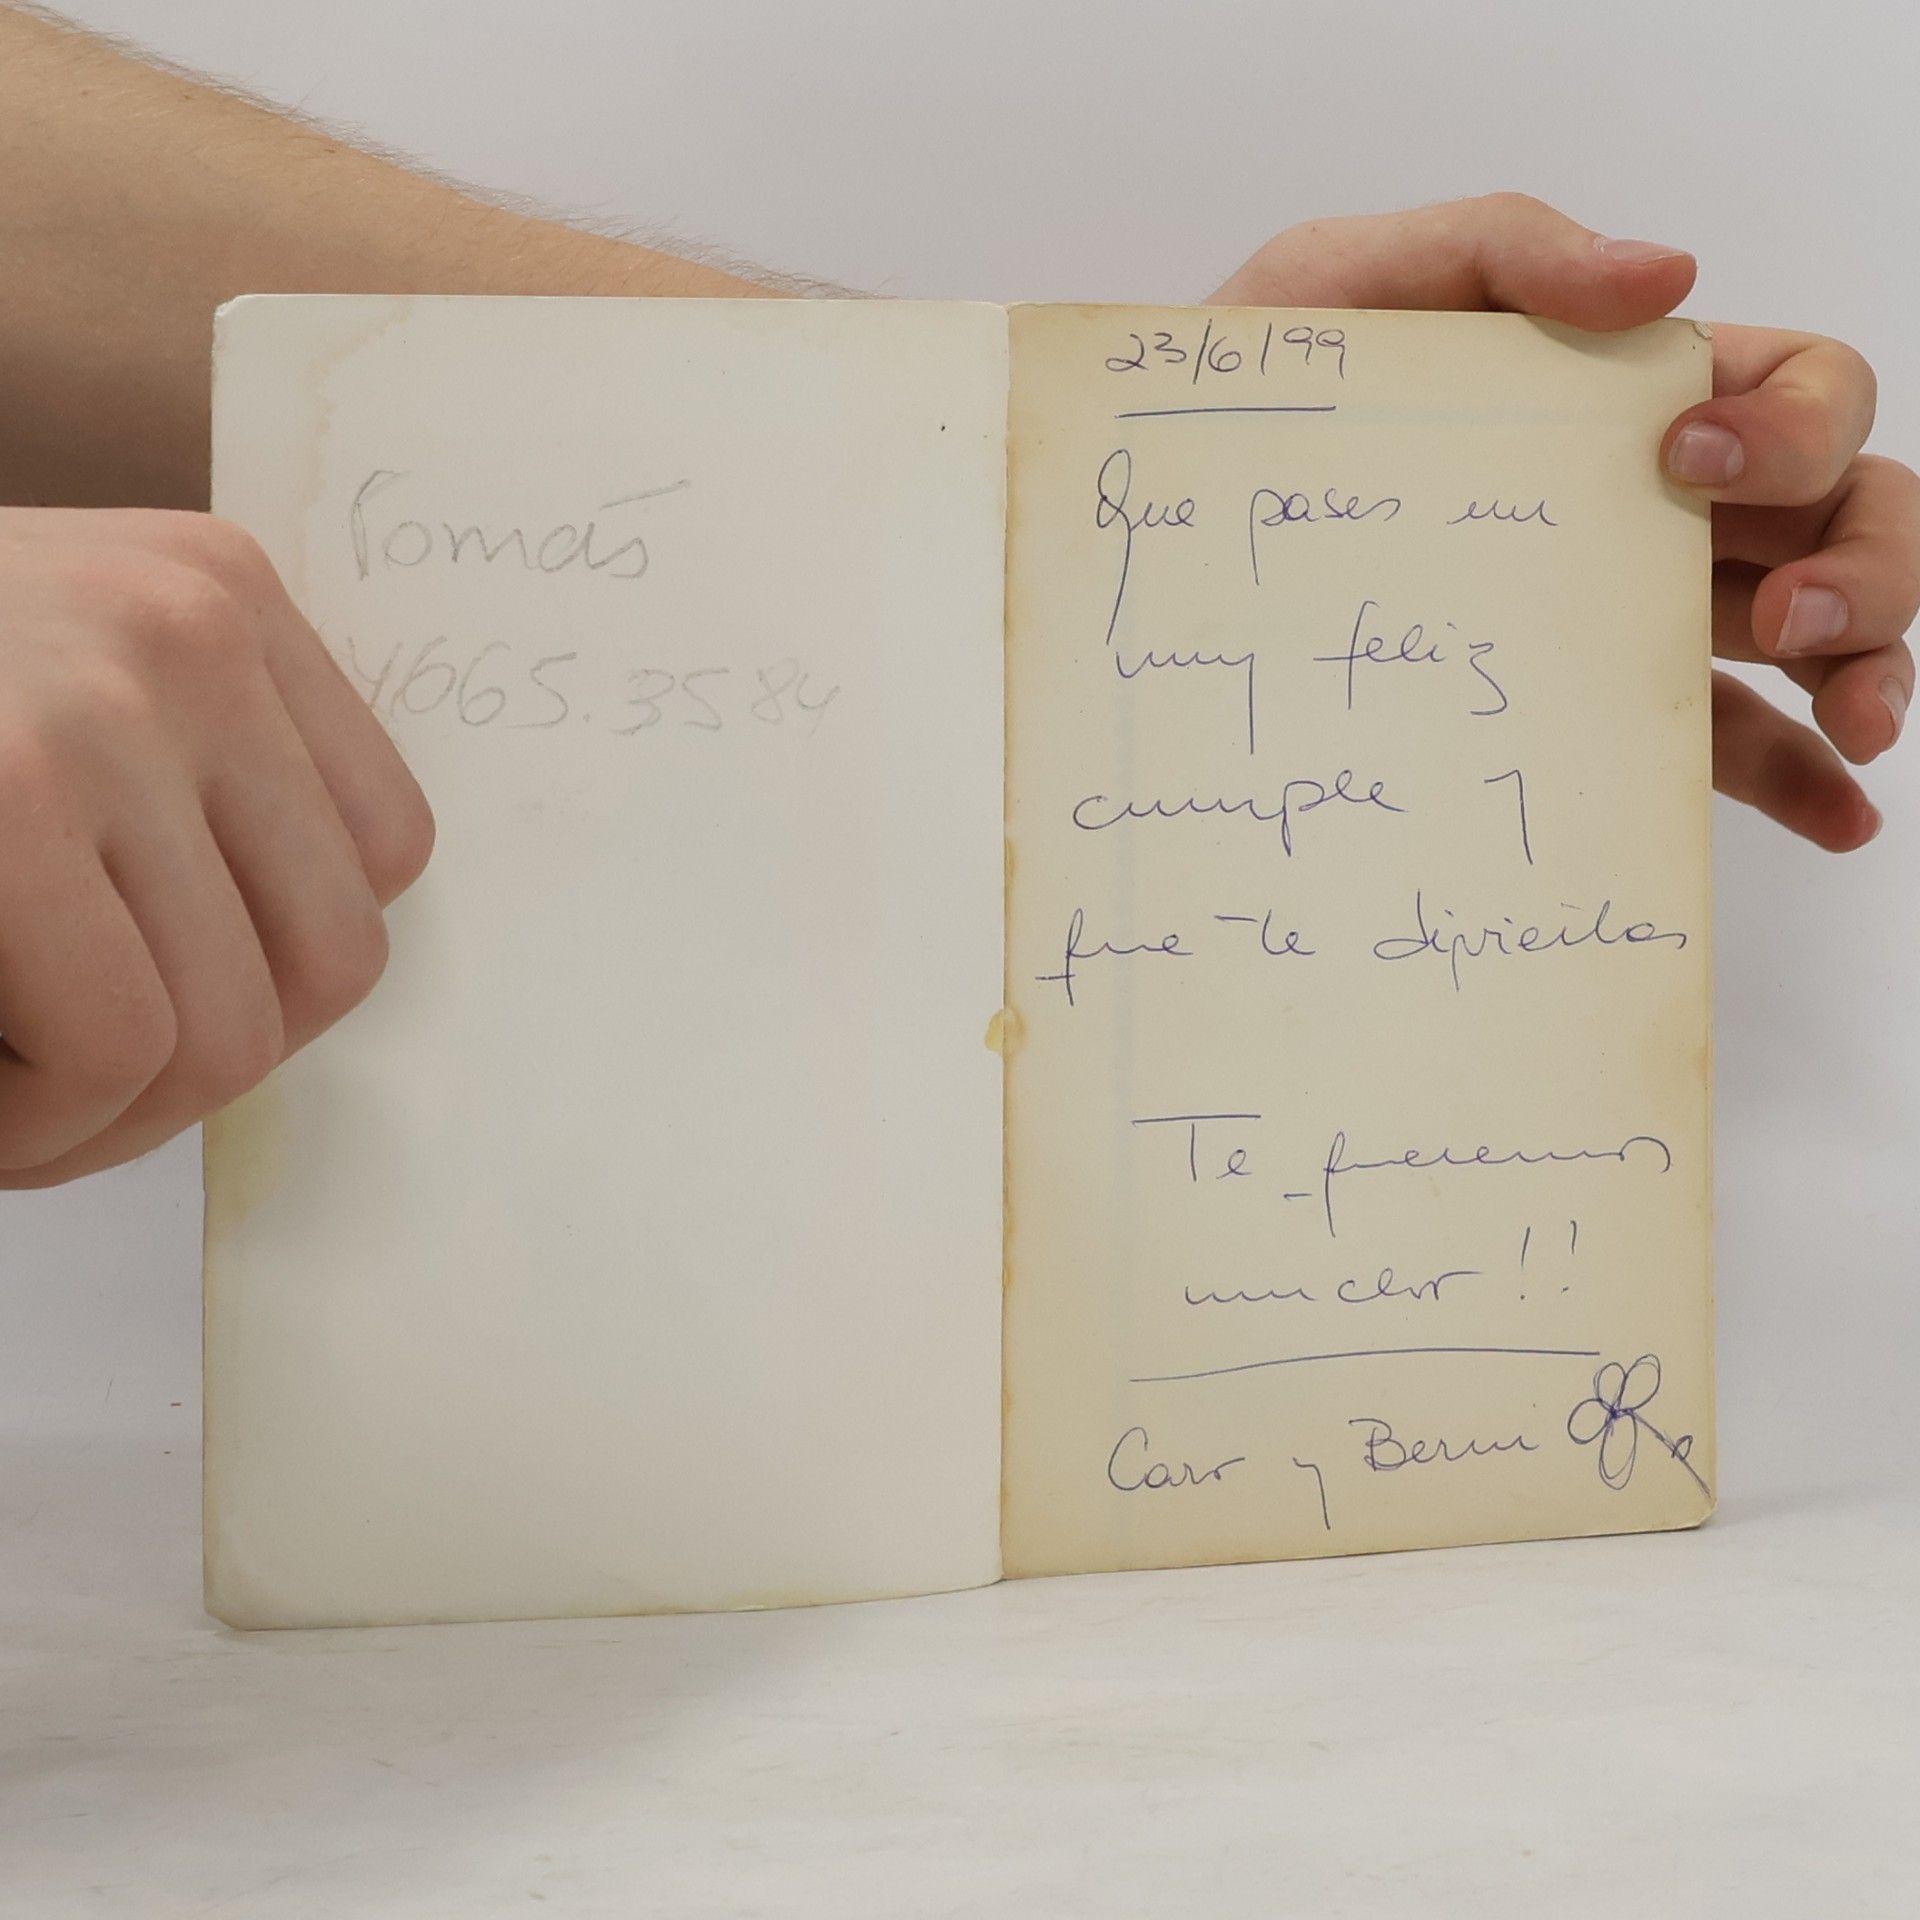 Tomás
4665.3584
23/6/99
Que pases un
muy feliz
cumple y
que te diviertas
Te queremos
mucho!!
Caro y Berni